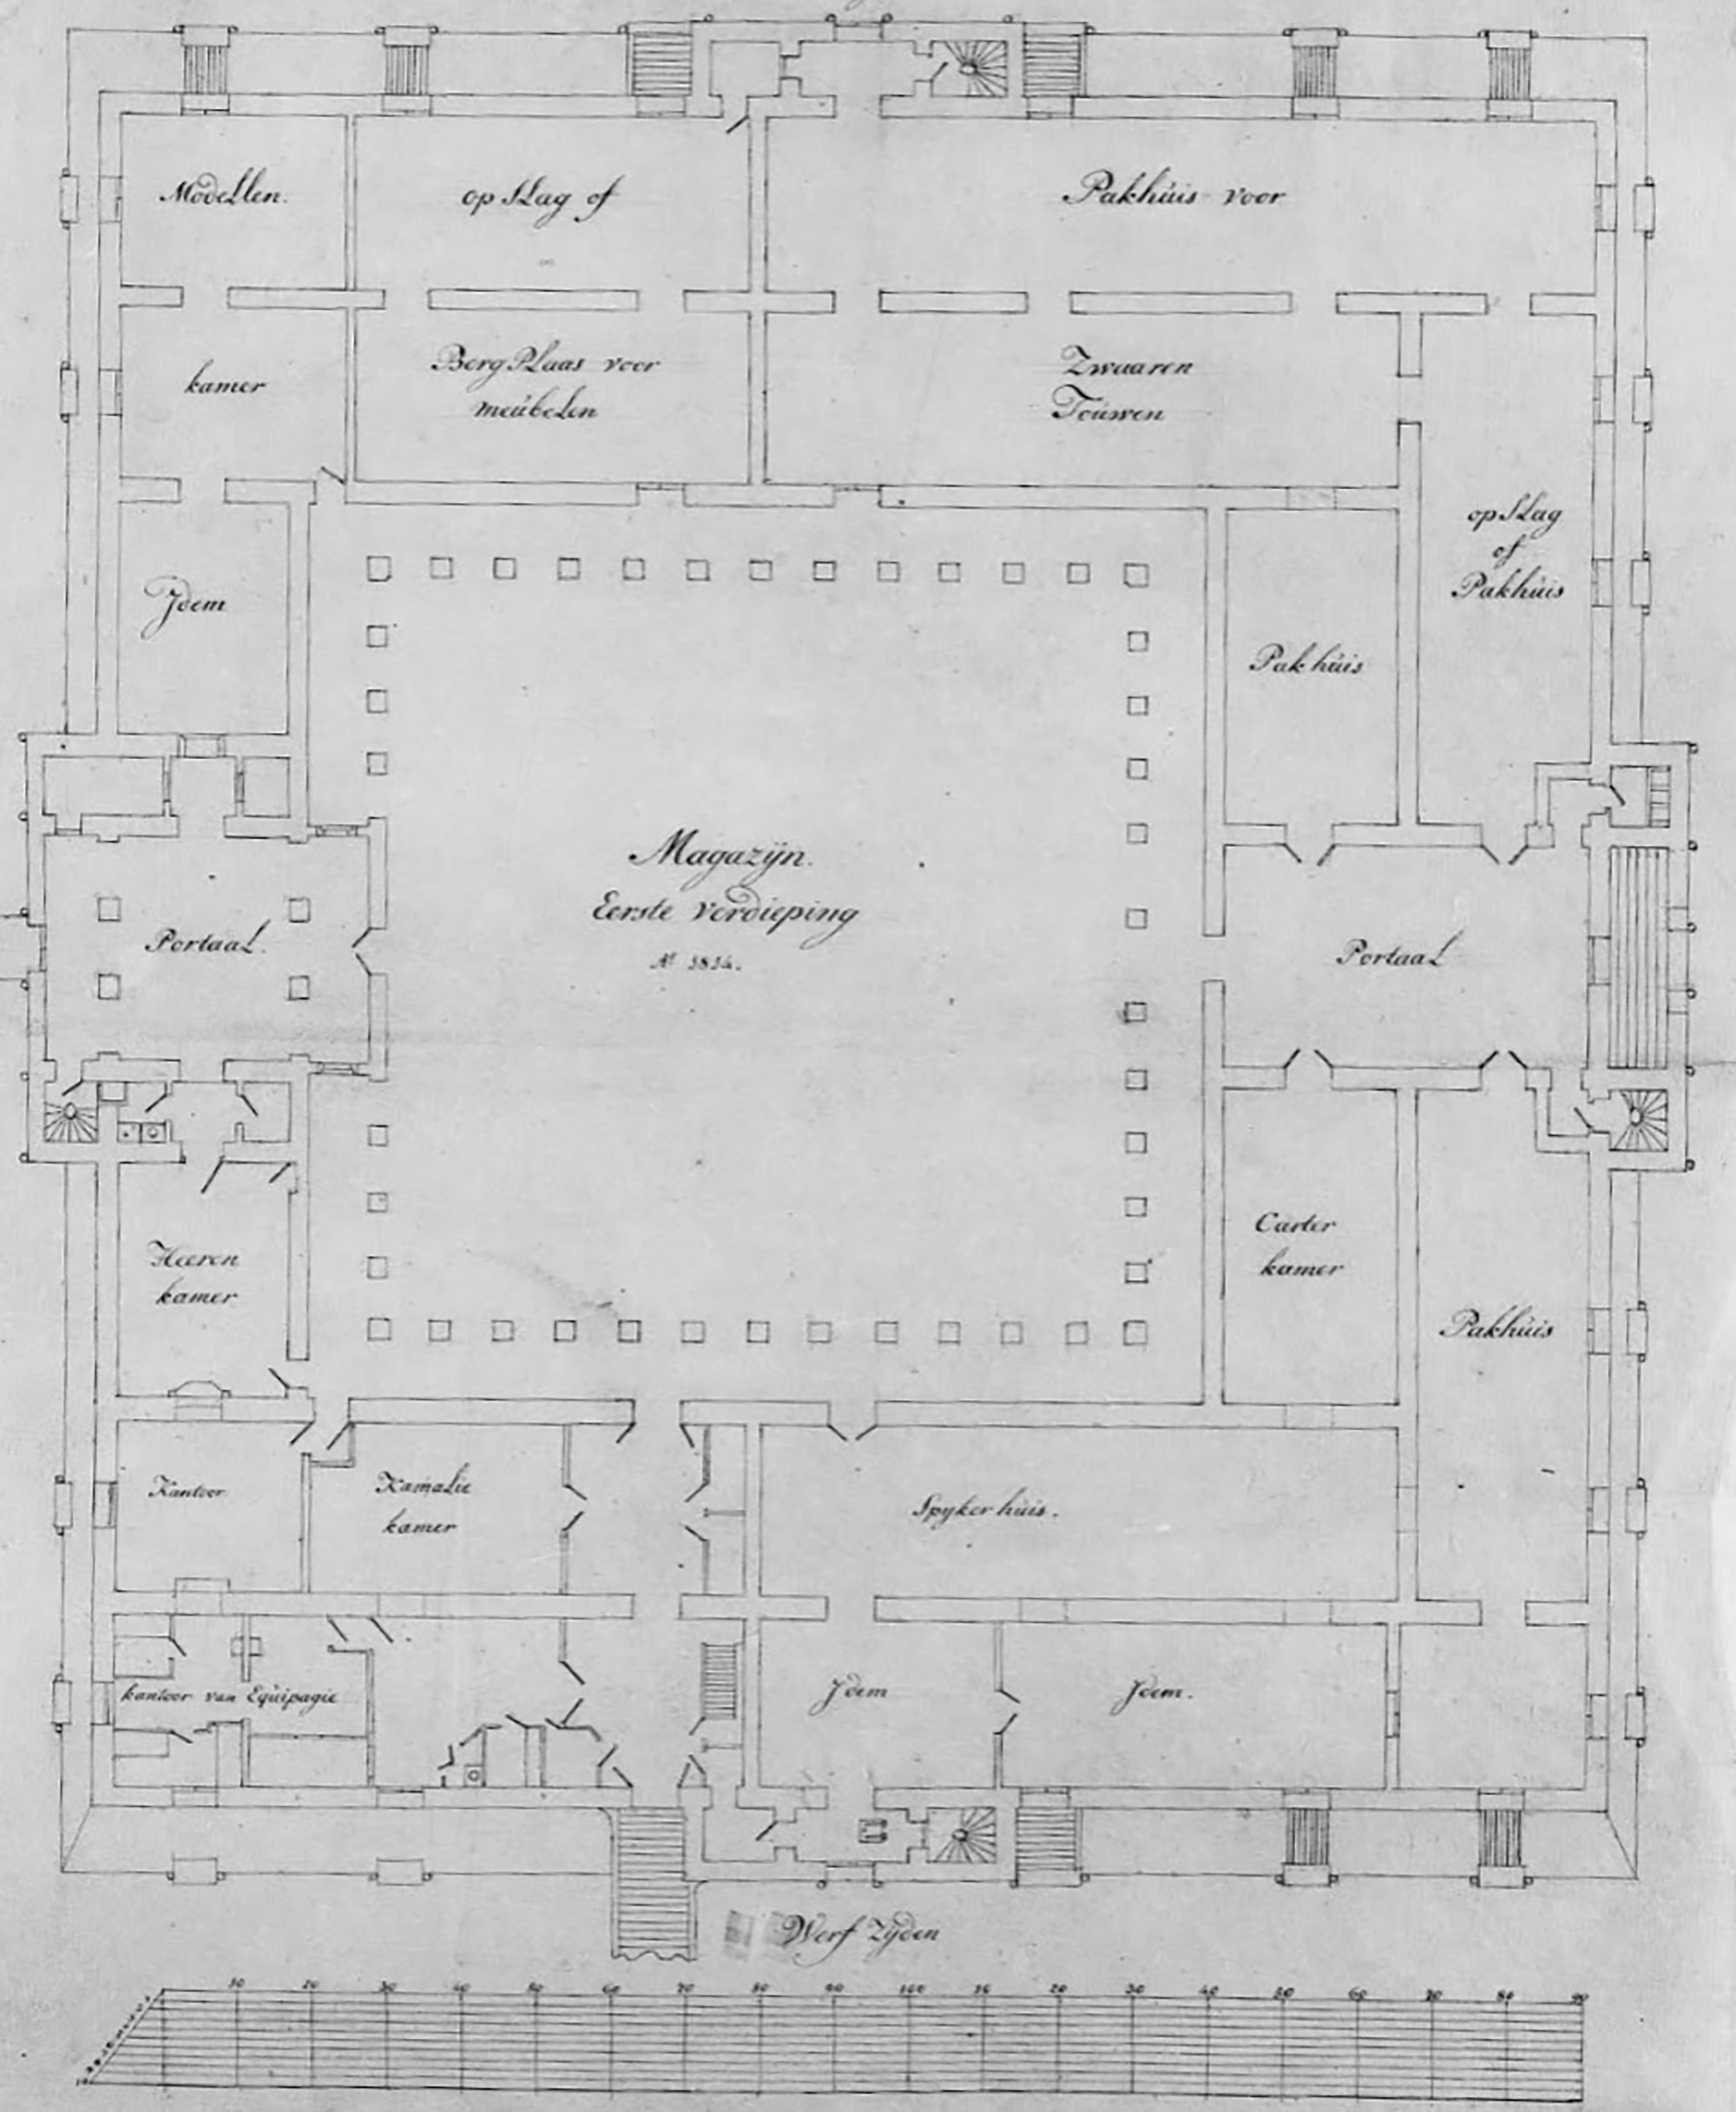 Modellen.
opSlag of
Pakhúis voor
kamer
BergPlaas voor
meúbelen
Zwaaren
Toúwen
Jdem
opSlag
of
Pakhúis
Pakhúis
Magazijn.
Eerste Verdieping
Aº 1814.
Portaal.
Portaal
Heeren
kamer
Carter
kamer
Pakhúis
Kantoor
Kamalie
kamer
Spykerhúis.
kantoor van Eqúipagie
Jdem
Jdem.
Werf Zijden
10 20 30 40 50 60 70 80 90 100 10 20 30 40 50 60 70 80 90